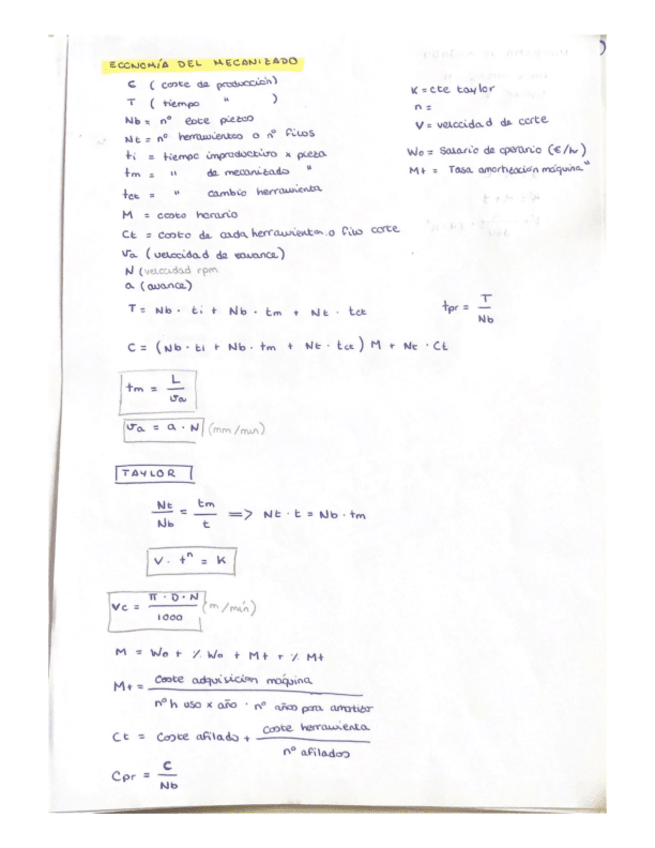 ECONOMÍA DEL MECANIZADO
C ( coste de producción)
T ( tiempo " )
Nb = nº lote piezas
Nt = nº herramientas o nº filos
ti = tiempo improductivo x pieza
tm = " de mecanizado "
tct = " cambio herramienta
M = costo horario
Ct = costo de cada herramienta o filo corte
Va (velocidad de avance)
N (velocidad rpm
a (avance)
K = cte taylor
n =
V = velocidad de corte
Wo = Salario de operario (€/h)
Mt = Tasa amortización máquina "
T = Nb · ti + Nb · tm + Nt · tct
tpr = T / Nb
C = (Nb · ti + Nb · tm + Nt · tct) M + Nt · Ct
tm = L / Va
Va = a · N (mm/min)
TAYLOR
Nt / Nb = tm / t => Nt · t = Nb · tm
V · t^n = K
Vc = π · D · N / 1000 (m/min)
M = Wo + % Wo + Mt + % Mt
Mt = Coste adquisición máquina / nº h uso x año · nº años para amortizar
Ct = Coste afilado + Coste herramienta / nº afilados
Cpr = C / Nb